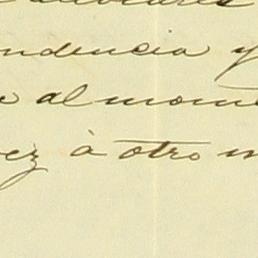 ndencia y
al mom
ez à otro m